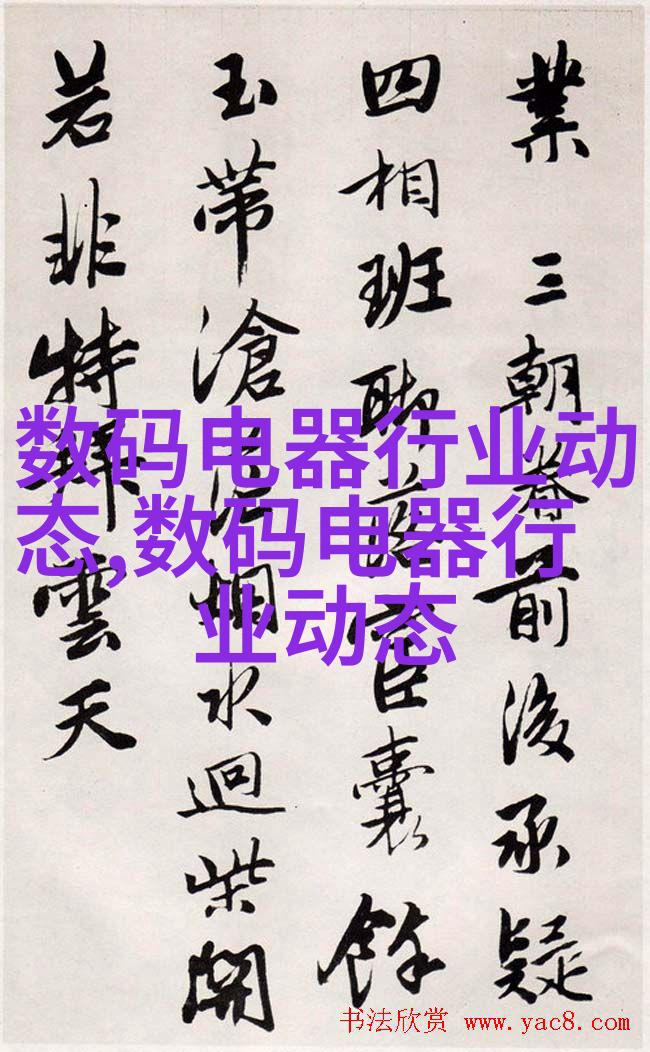 業 三朝眷前後承疑
四相班聊臣囊餘
玉帶滄烟水迥柴開
若非特雲天
数码电器行业动
态,数码电器行
业动态
书法欣赏 www.yac8.com